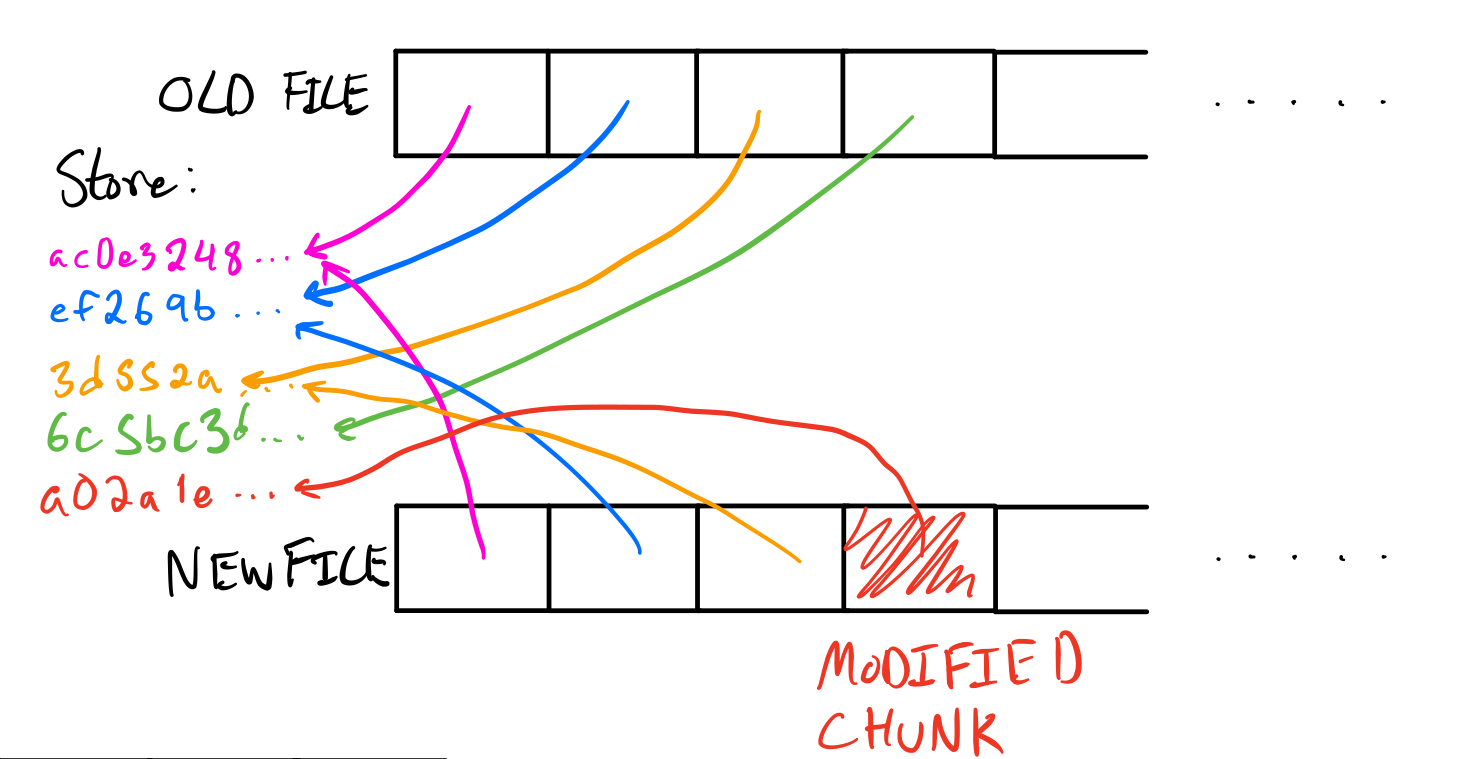 OLD FILE
Store:
ac0e3248...
ef269b...
3d552a...
6c5bc36...
a02a1e...
NEW FILE
MODIFIED
CHUNK